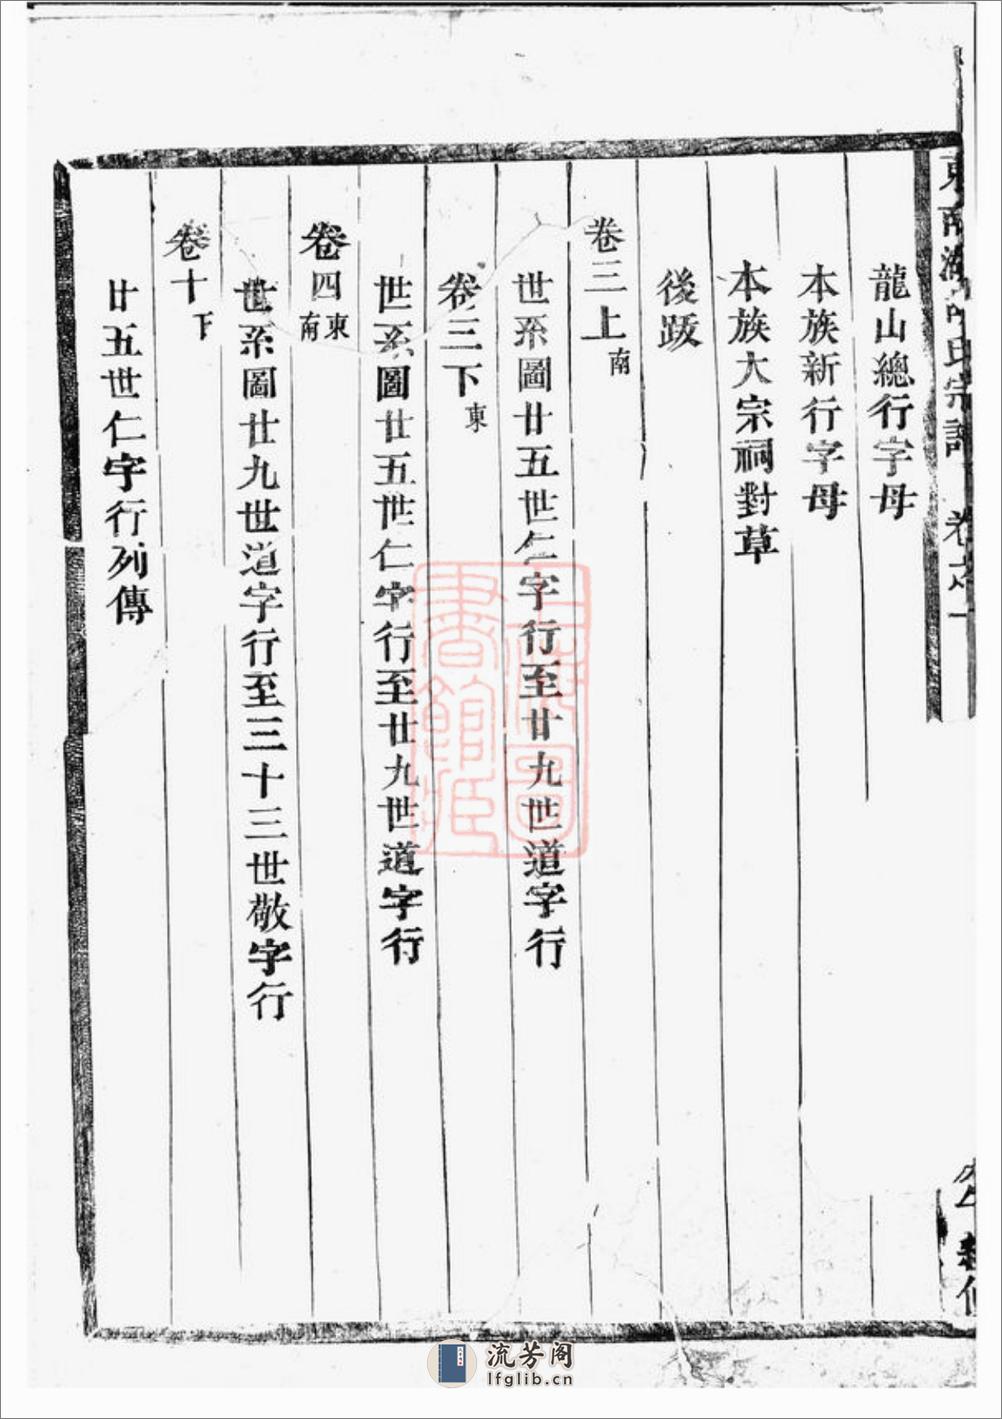 龍山總行字母
本族新行字母
本族大宗祠對草
後跋
卷三上南
世系圖廿五世仁字行至廿九世道字行
卷三下東
世系圖廿五世仁字行至廿九世道字行
卷四東南
世系圖廿九世道字行至三十三世敬字行
卷十下
廿五世仁字行列傳
流芳阁
lfglib.cn